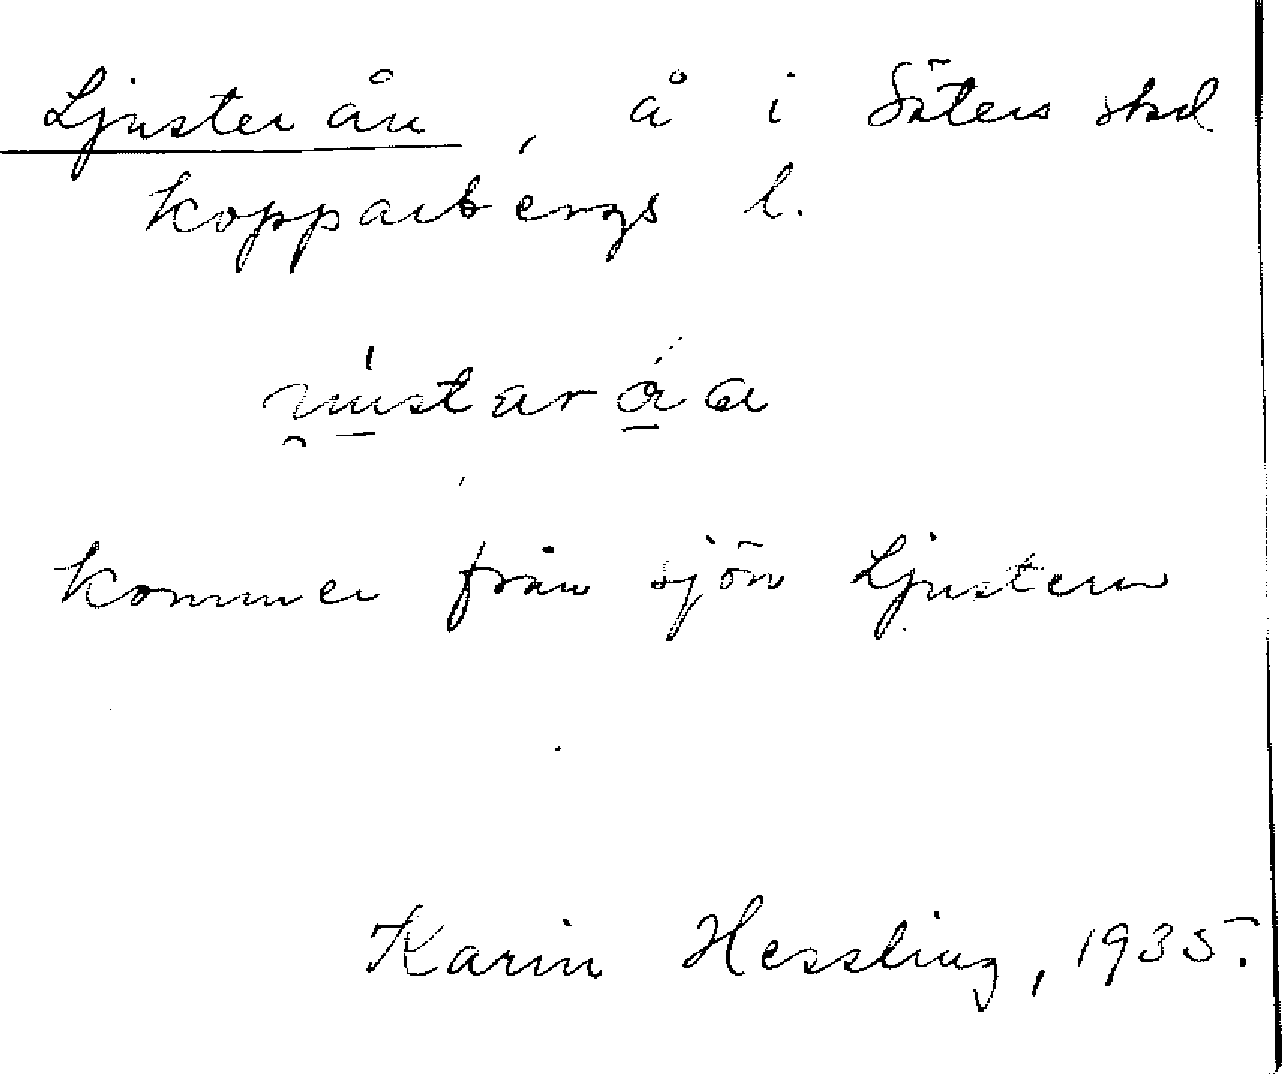 Ljusterån, å i Säters stad
Kopparbergs l.
kommer från sjön Ljustern
Karin Hessling, 1935.